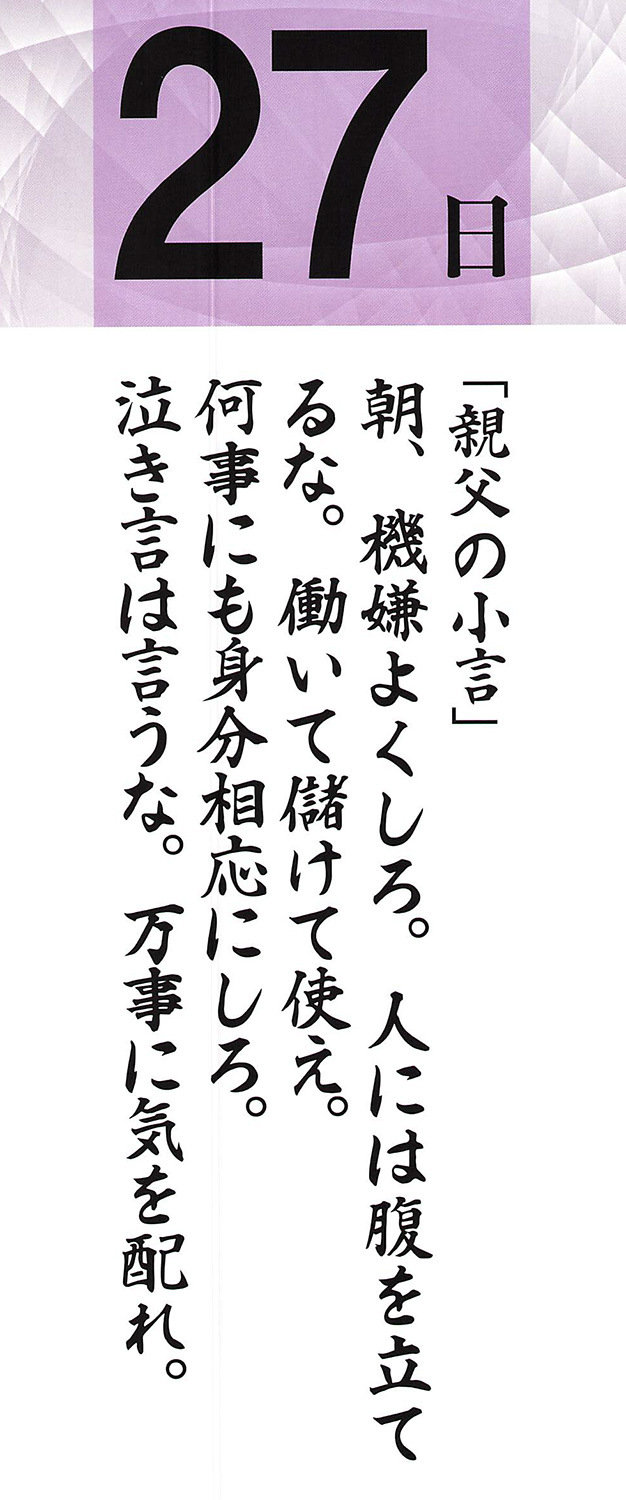 27日
「親父の小言」
朝、機嫌よくしろ。 人には腹を立て
るな。 働いて儲けて使え。
何事にも身分相応にしろ。
泣き言は言うな。 万事に気を配れ。